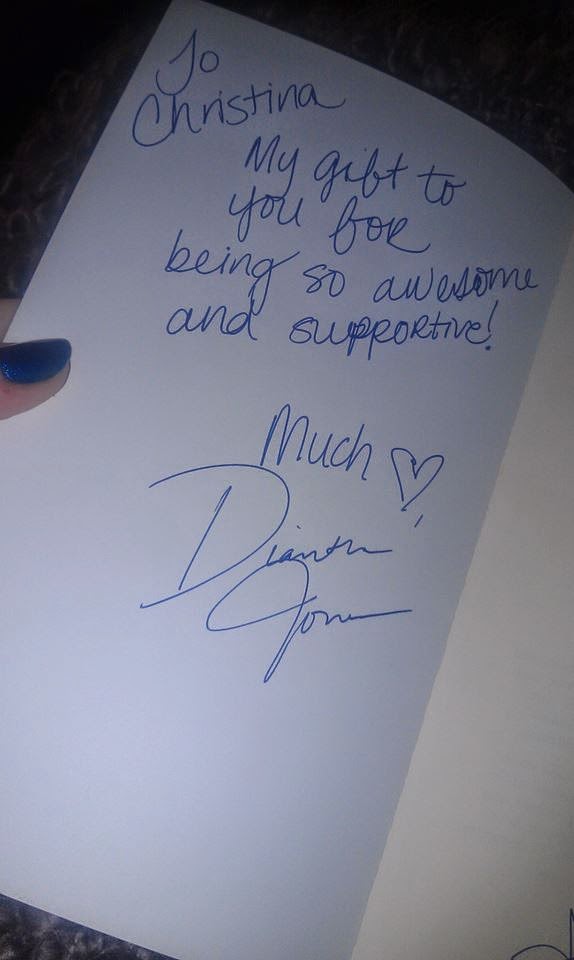 To
Christina
My gift to
you for
being so awesome
and supportive!
Much ♡,
Dianth
Jones